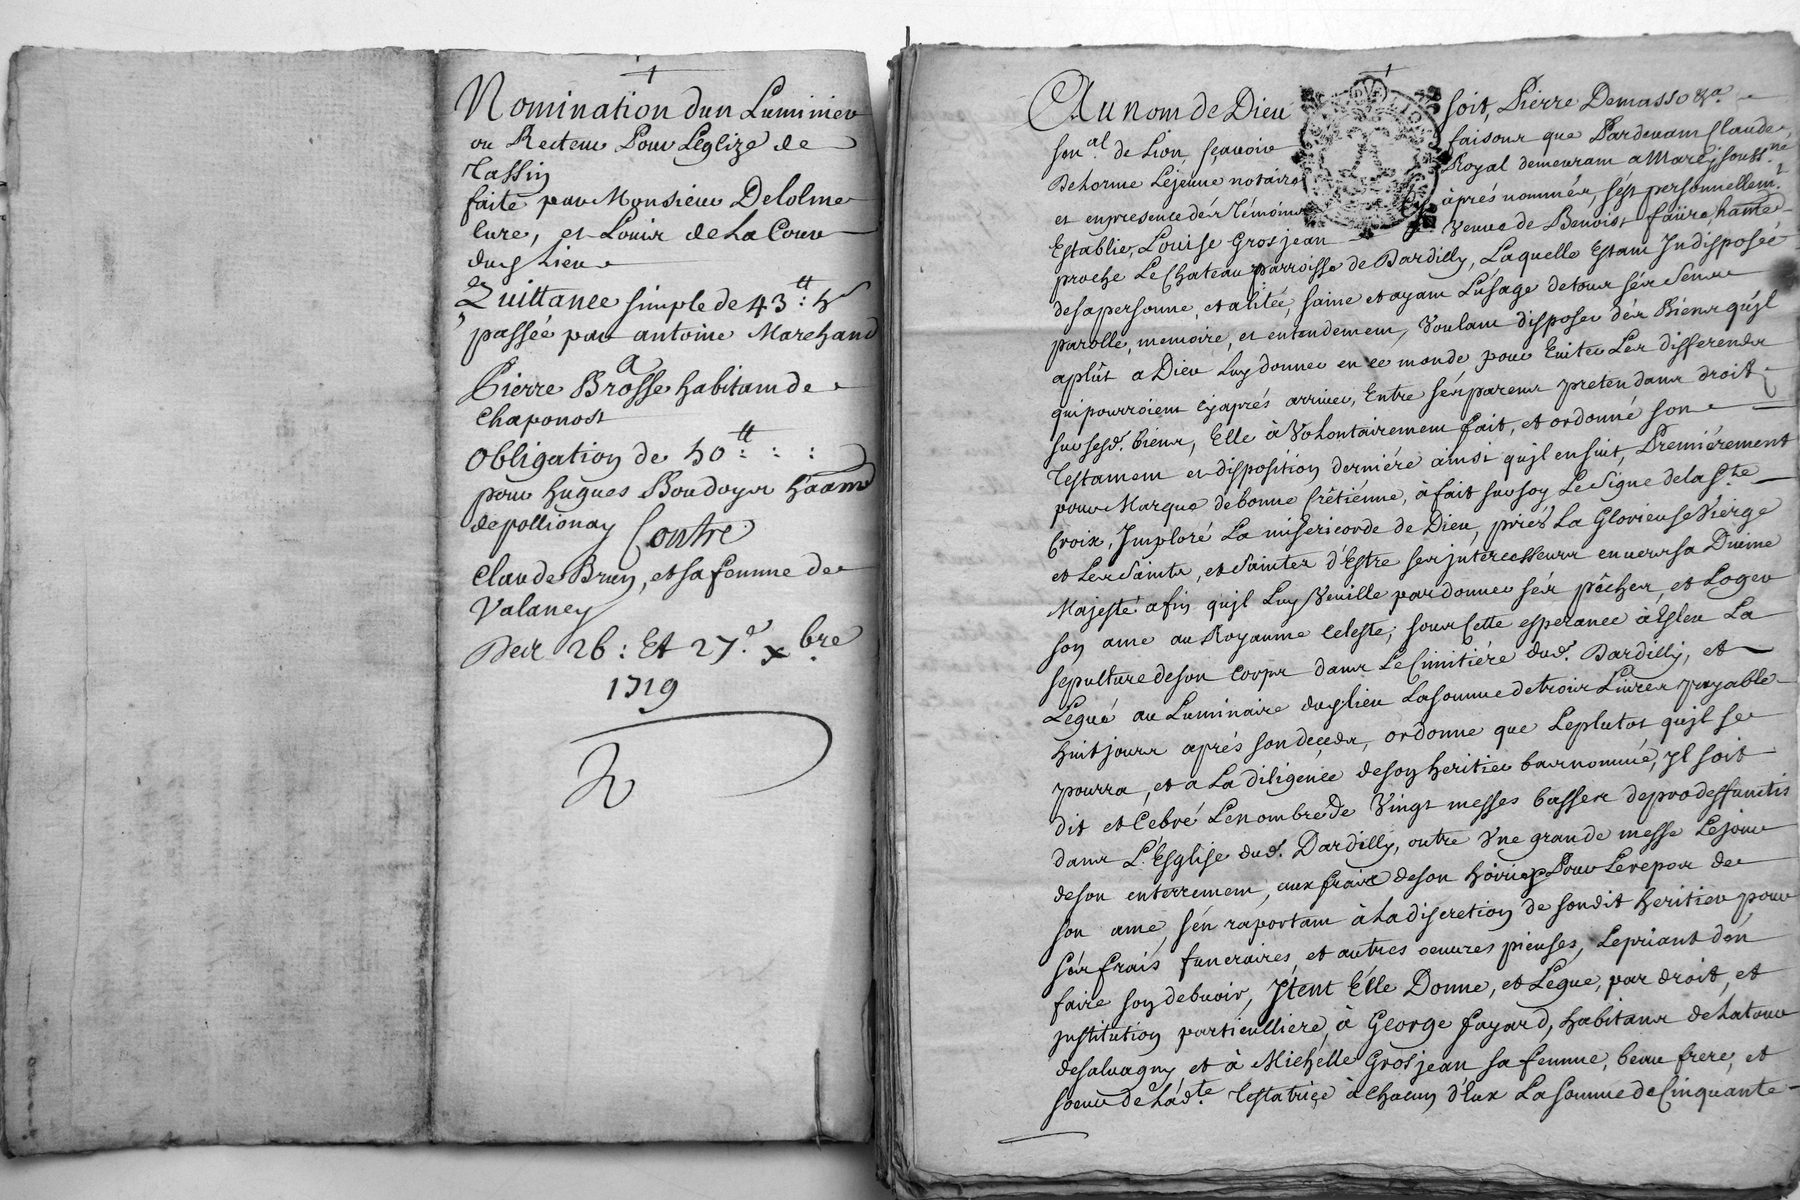 Nomination dun Luminier
ou Recteur Pour Leglize de
Tassin
faite par Monsieur Delolme
Cure, et Louis de La Cour
dud Lieu
Quittance simple de 43tt: 5s
passée par antoine Marchand
a
Pierre Brosse habitam de
Chaponost
Obligation de 50tt: : :
pour hugues Boudoyer
de pollionay Contre
Claude Brun, et sa femme de
Valaney
Des 26: Et 27.e xbre
1719
Au nom de Dieu soit, Pierre Demasso &a
sen.al de Lion, sçavoir faisons que Pardevam Claude
Delorme Lejeune notaire Royal demeuram a Marcy souss.ne
et en presence dés Témoins aprés nommés, s'ést personnellem.t
Establie, Louise Grosjean Veuve de Benoist faûre, ha͞me
proche Le Chateau parroisse de Dardilly, Laquelle Estam Indisposée
de sa personne, et alitée, saine et ayam L'úsage de tous sés sens
parolle, memoire, et entendement, Voulam disposer dés Biens qu'jl
a plût a Dieu Luy donner en ce monde, pour Euiter Les differends
qui pourroiem cÿ aprés arriuer, Entre sés parens pretendans droit
sur sesd. biens, Elle à Volontairemem fait, et ordonné son
Testamem et disposition derniére ainsi qu'jl ensuit, Premiérement
pour Marque de bonne Crêtiénne, à fait sur soy Le Signe de la S.te
Croix, Imploré La misericorde de Dieu, priér La Glorieuse Viérge
et Les Saints, et Saintes d'Estre ses jntercesseurs enuers sa Diuine
Majesté afin qu'jl Luy Veuille pardonner sés pêchés, et Loger
son ame au Royaume Celeste; sous Cette esperance à Esleu La
sepulture de son Corps dans Le Cimitiére dud. Dardilly, et
Legué au Luminaire dud lieu La somme de trois Liures payable
huit jours aprés son decéds, ordonne que Le plutot qu'jl se
pourra, et a La diligence de son heritier bas nommé, Jl soit
dit et Cebré Le nombre de Vingt messes basses de pro deffunctis
dans L'Esglise dud. Dardilly, outre Vne grande messe Le jour
de son enterremem, aux frais de son Pour Le repos de
son ame, s'én raportam à La discretion de sondit heritier pour
sés frais funeraires, et autres oeuures pieuses, Le priant d'en
faire son debuoir, Jtent Elle Donne, et Légue, par droit, et
jnstitution particulliere, à George fayard, habitans de La tour
de salvagny et à Michélle Grosjean sa femme, beau frere, et
soeur de La d.te Testatriçe à Chacun d'Eux La somme de Cinquante